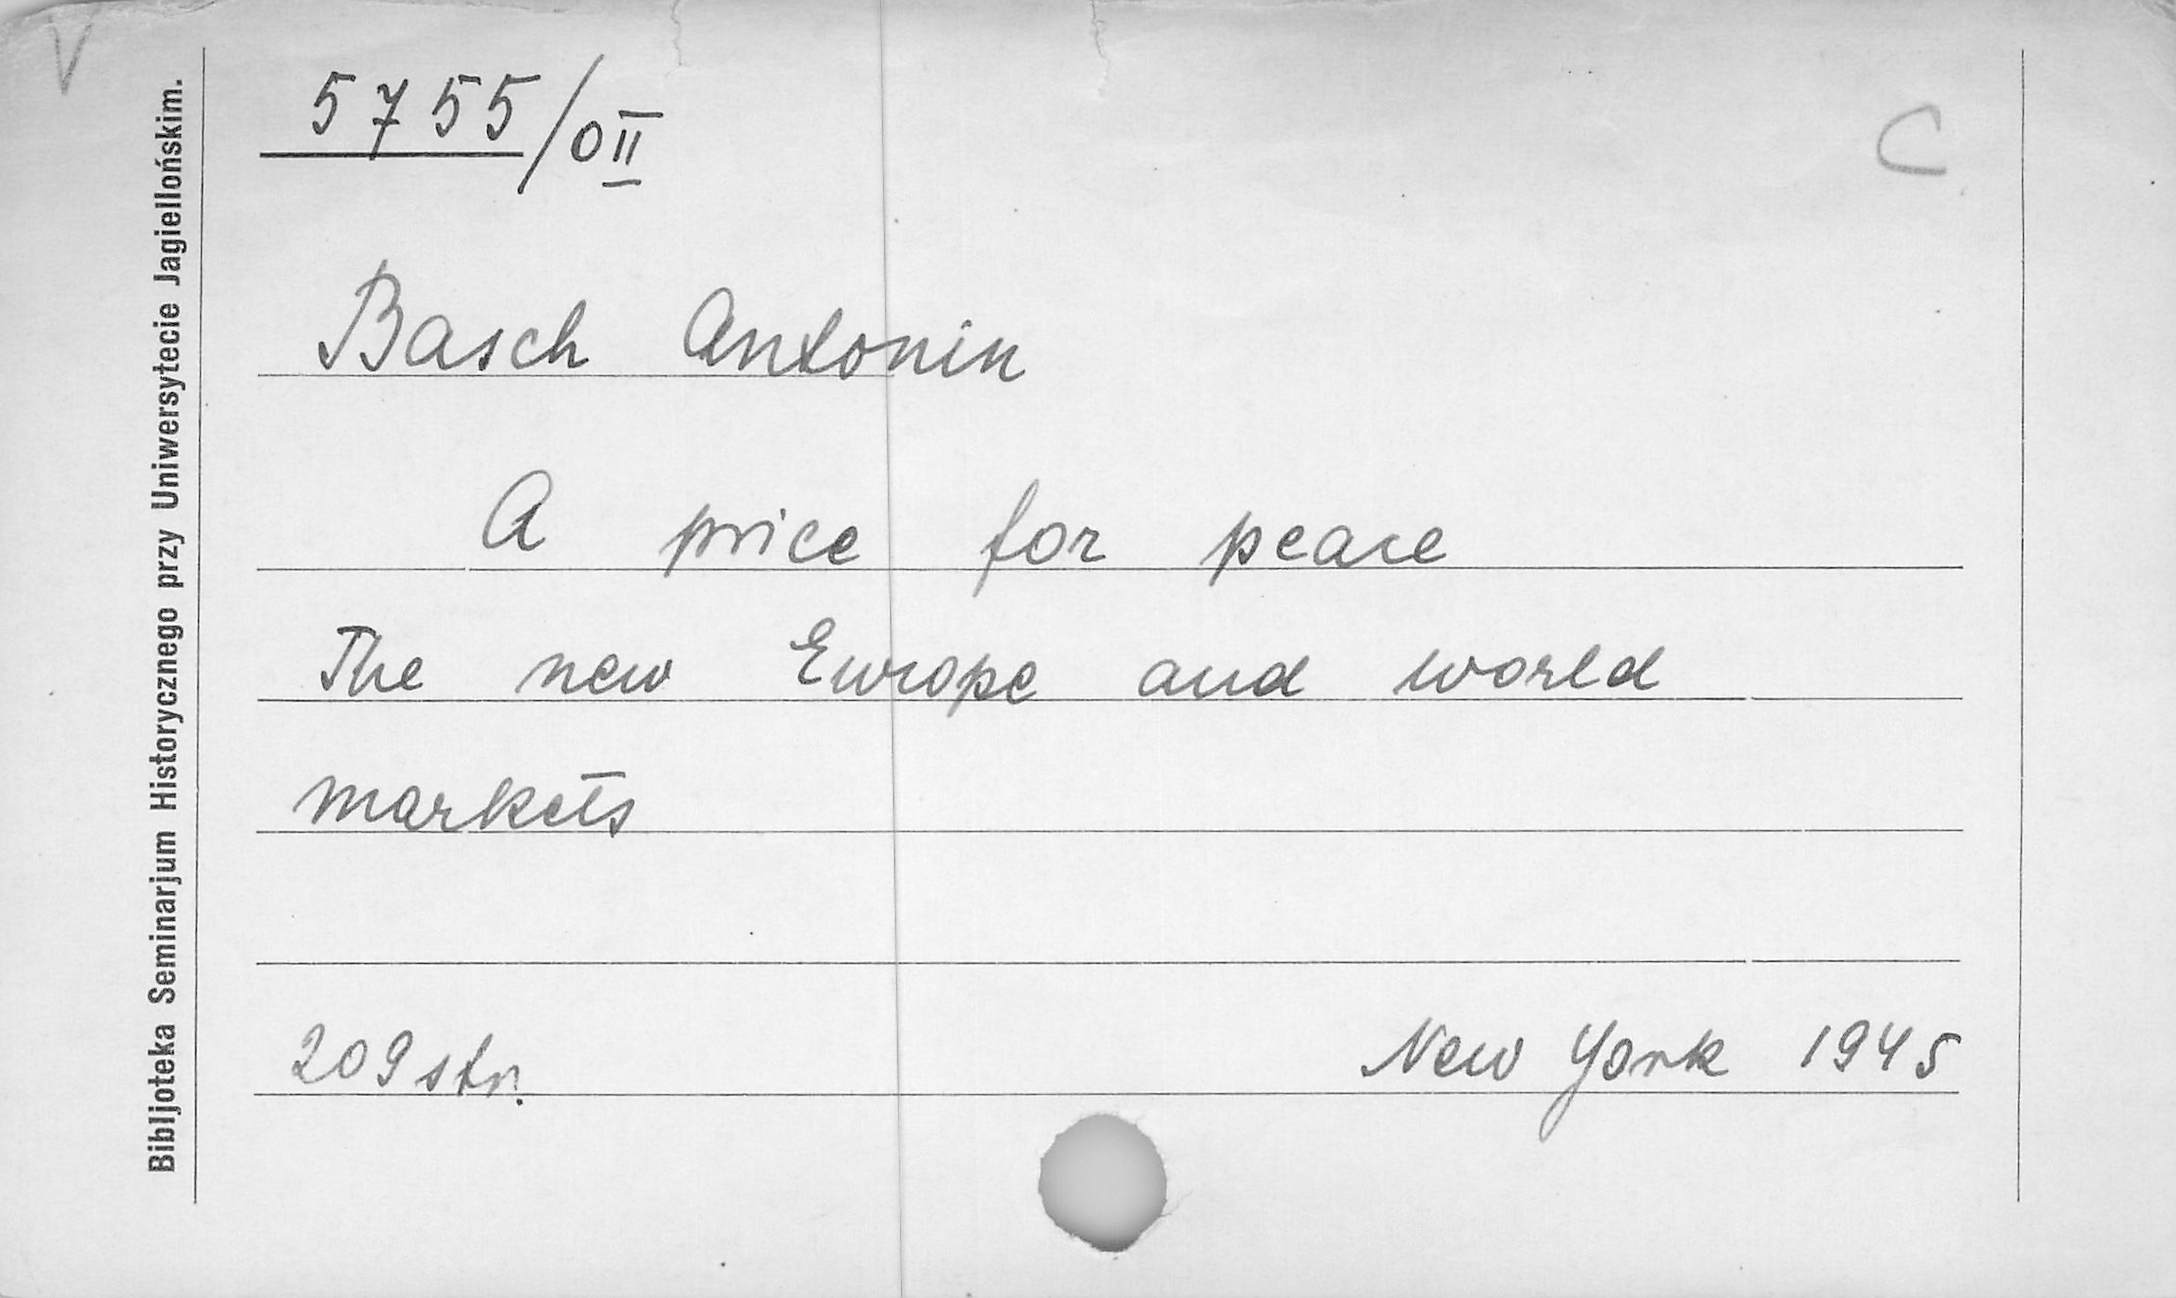 V
5755/0II
C
Basch Antonin
A price for peace
The new Europe and world
markets
209 str.
New York 1945
Bibljoteka Seminarjum Historycznego przy Uniwersytecie Jagiellońskim.